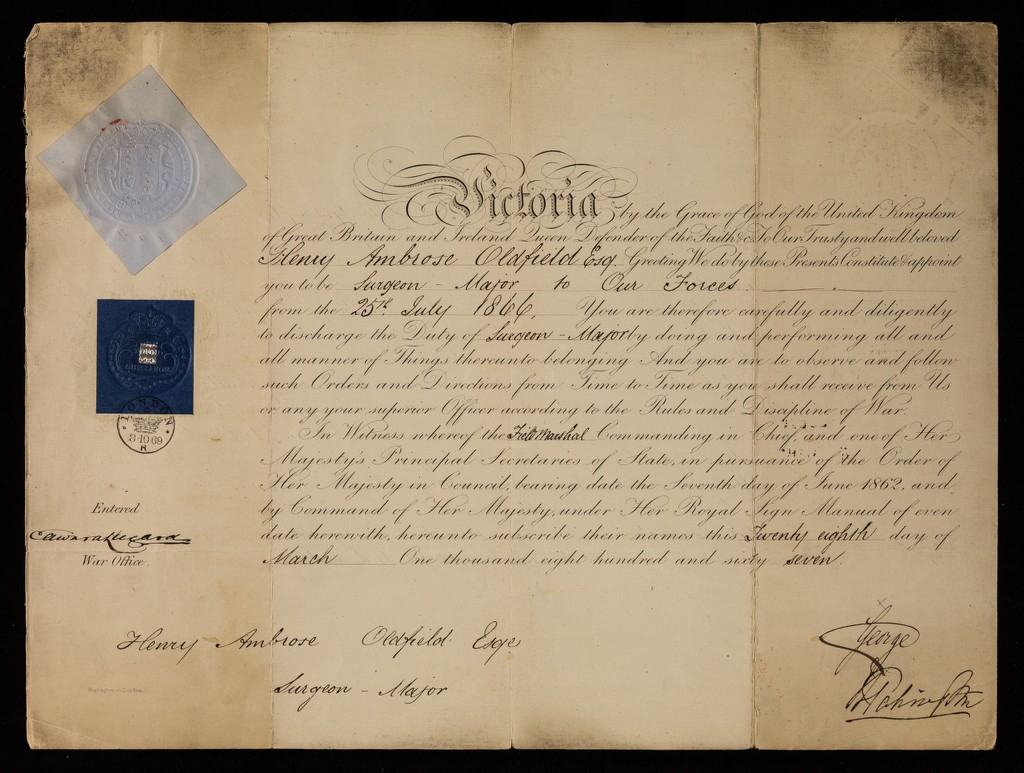 Victoria by the Grace of God of the United Kingdom
of Great Britain and Ireland Queen Defender of the Faith &c To Our Trusty and well beloved
Henry Ambrose Oldfield Esq. Greeting We do by these Presents Constitute & appoint
you to be Surgeon - Major to Our Forces
from the 25th July 1866. You are therefore carefully and diligently
to discharge the Duty of Surgeon - Major by doing and performing all and
all manner of Things thereunto belonging And you are to observe and follow
such Orders and Directions from Time to Time as you shall receive from Us
or any your superior Officer according to the Rules and Discipline of War.
In Witness whereof the Field Marshal Commanding in Chief, and one of Her
Majesty's Principal Secretaries of State, in pursuance of the Order of
Her Majesty in Council, bearing date the Seventh day of June 1862, and
by Command of Her Majesty, under Her Royal Sign Manual of even
date herewith, hereunto subscribe their names this Twenty eighth day of
March One thousand eight hundred and sixty seven.
LONDON
3·10 69
R
Entered
War Office.
Henry Ambrose Oldfield Esqe
Surgeon - Major
George